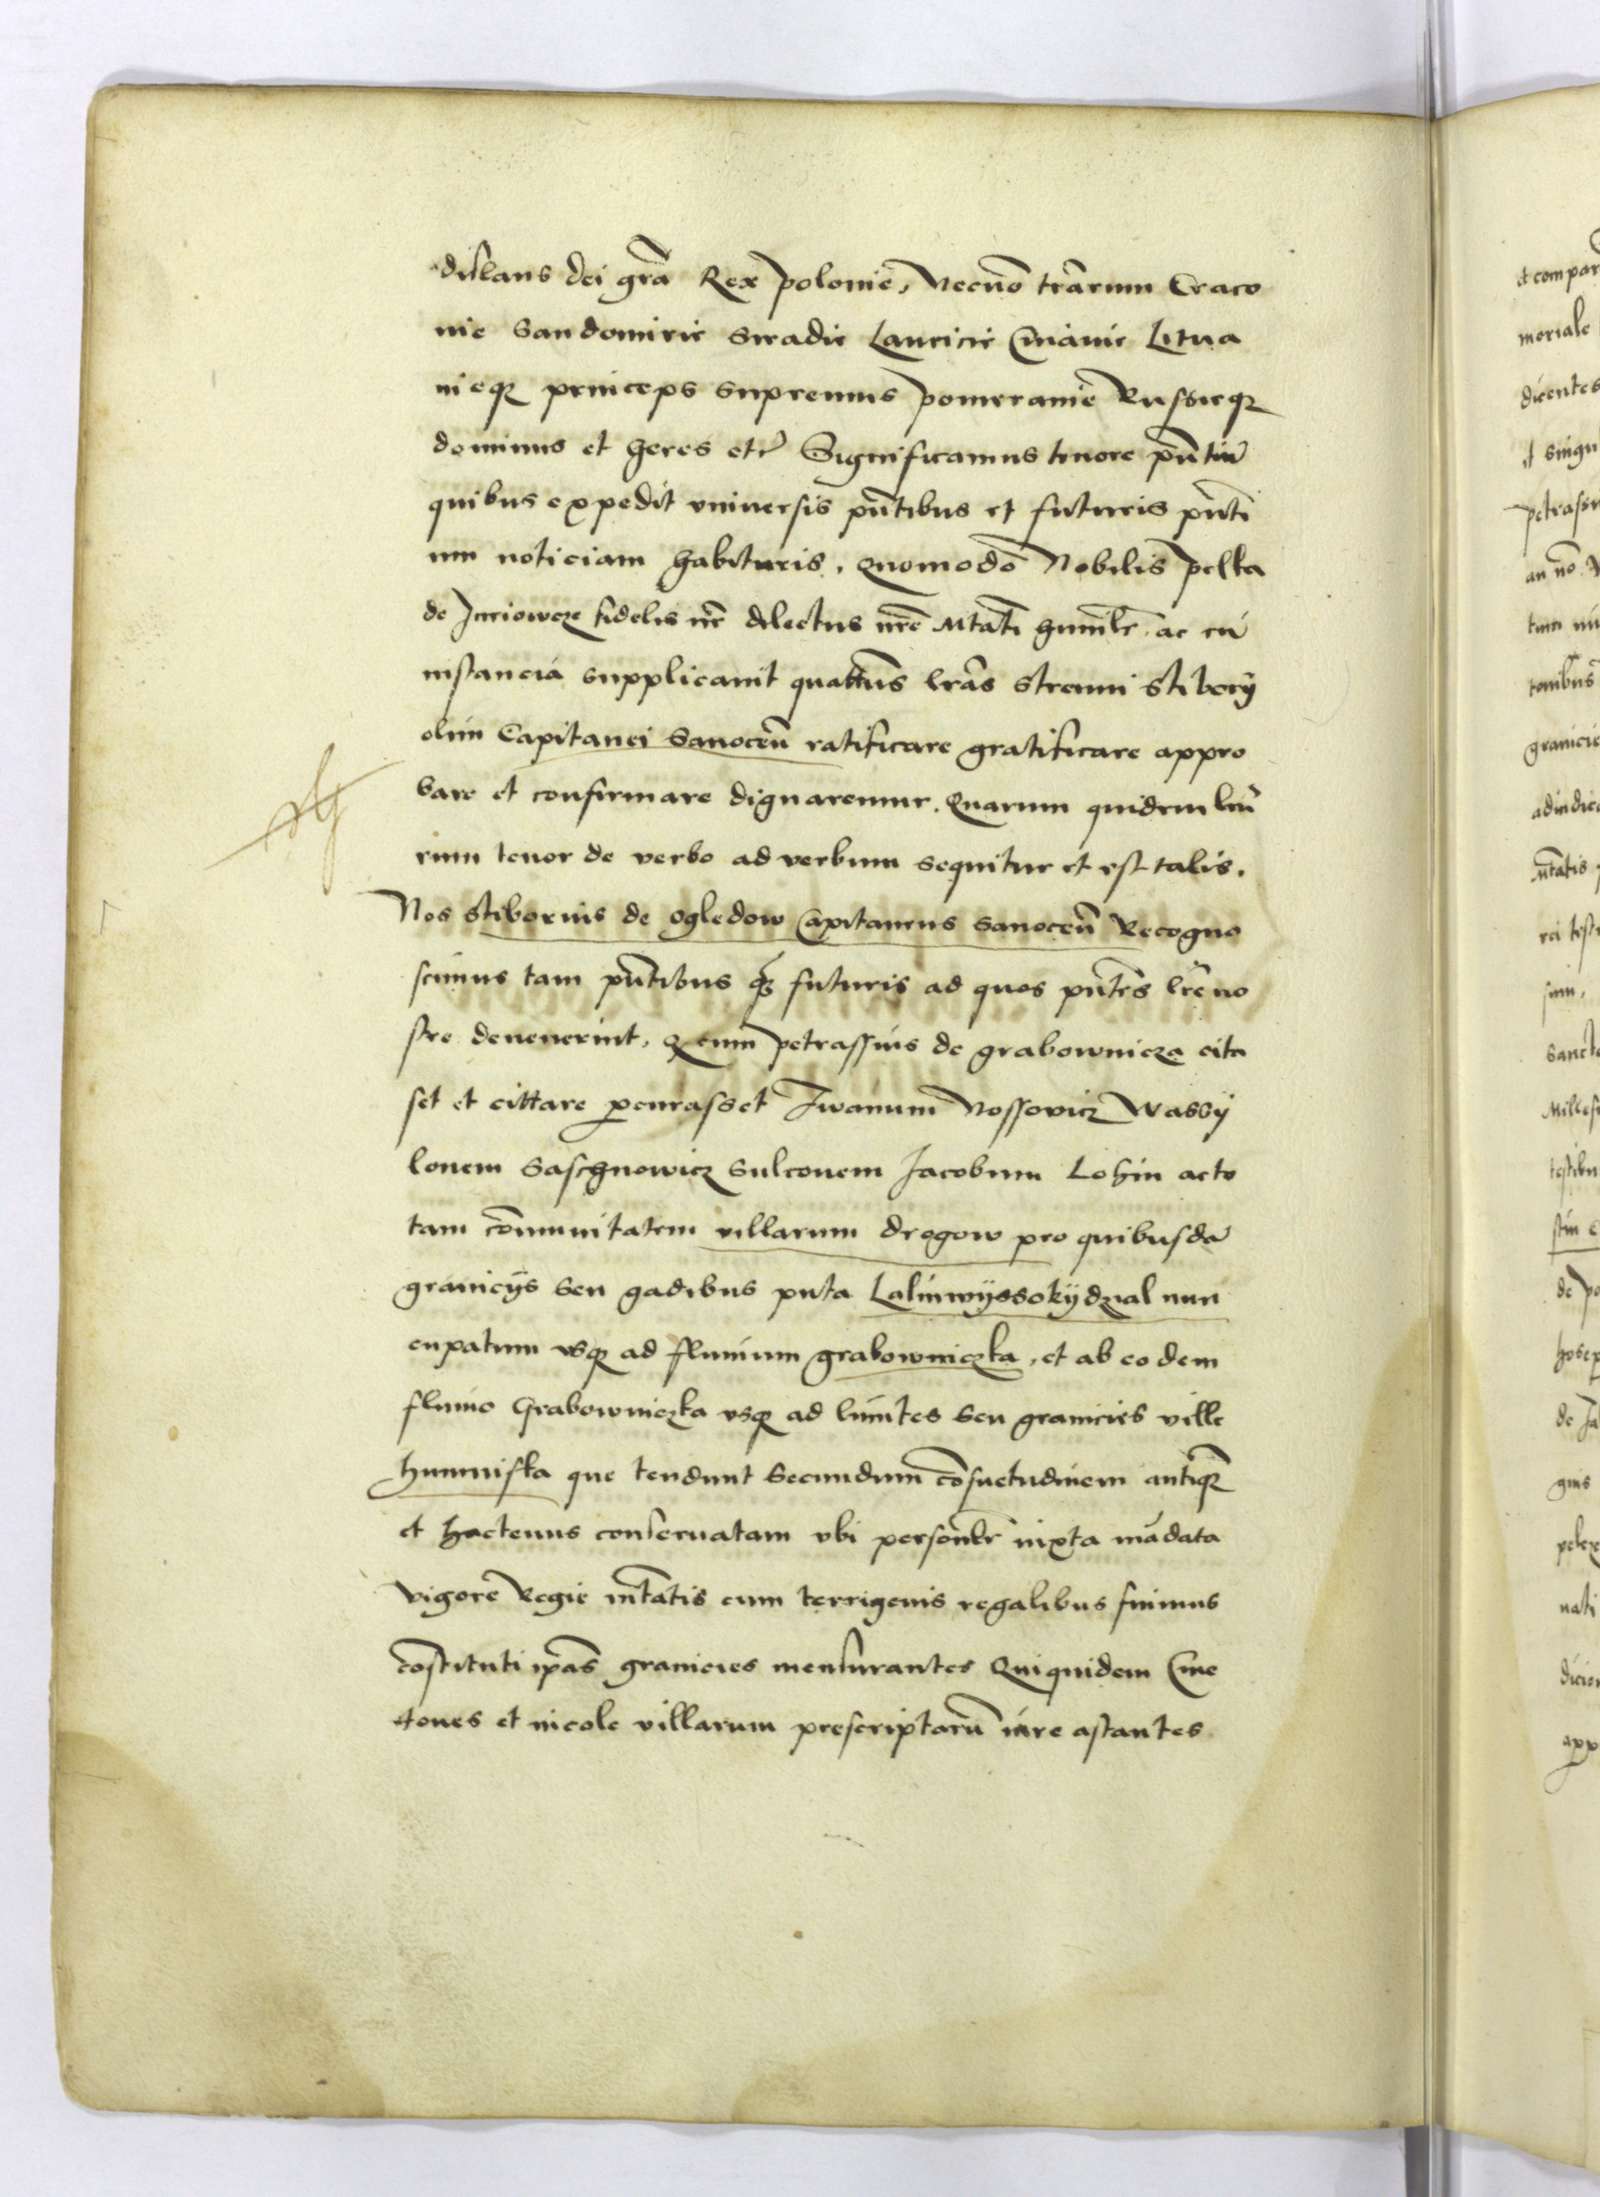 dislaus dei gra Rex polonie, Necno trarum Craco
vie Sandomirie Siradie Lancicie Cuiauie Litua
nieq princeps supremus pomeranie Russieq
dominus et heres etc Significamus tenore pntiu
quibus expedit vniuersis pntibus et futuris pnti
um noticiam habituris, quomodo Nobilis pelka
de fidelis nr dilectus nre Mtati humilr ac cu
instancia supplicauit quatenus lras strenui stibory
olim Capitanei Sanocen ratificare gratificare appro
bare et confirmare dignaremur. Quarum quidem lra
rum tenor de verbo ad verbum sequitur et est talis.
Nos stiborius de ogledow Capitaneus Sanocen Recogno
scimus tam pntibus q futuris ad quos pntes lre no
stre deuenerint, q cum petrassius de grabownicza cita
set et cittare Iwanum Nossovicz Wassy
lonem Saschnowicz Sulconem Jacobum Lohin acto
tam comunitatem villarum drogow pro quibusda
granicijs seu gadibus puta Lalinwyssokydzial nun
cupatum vsq ad fluuium grabowniczka, et ab eodem
fluuio Grabowniczka vsq ad limites seu granicies ville
humniska que tendunt secundum cosuetudinem antiq
et hactenus conseruatam vbi personlr iuxta madata
vigore Regie mtatis cum terrigenis regalibus fuimus
costituti ipas granicies mensurantes Quiquidem Cme
tones et incole villarum prescriptaru iure astantes
et compar
moriale
dicentes
et singu
petrassi
granicie
adiudica
mtatis
rei test
sancto
Millesi
testibu